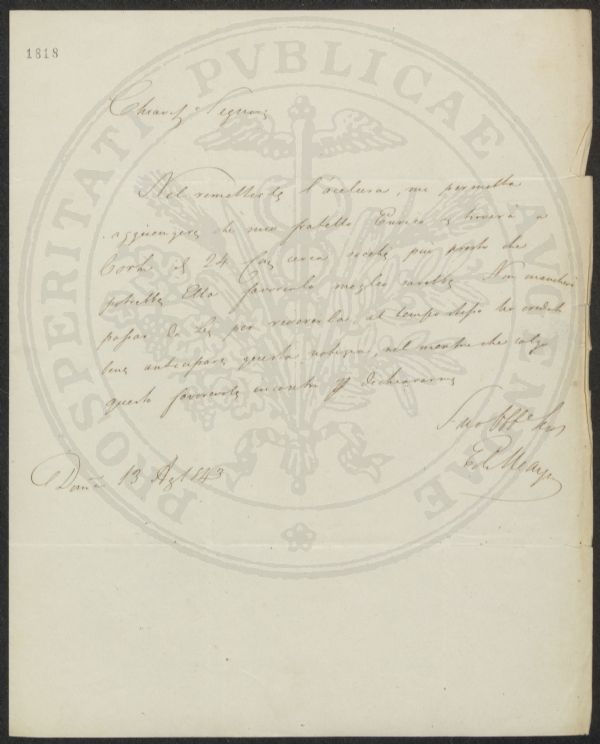 1818
PROSPERITATI PVBLICAE AVGENDAE
Nel rimetterle l'acclusa, mi permetta
aggiungere che mio fratello Enrico si troverà a
24 circa più presto che
potrebbe Ella favorirlo meglio sarebbe. Non mancherà
passar da Lei per riceverla, al tempo stesso ho creduto
bene anticipare questa notizia, nel mentre che colgo
questo favorevole incontro p dichiararmi
Suo
13 Ag 1843